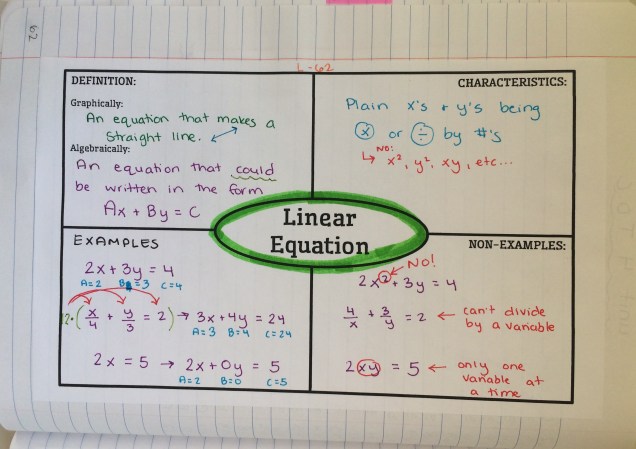 62
L-62
DEFINITION:
Graphically:
An equation that makes a
straight line.
Algebraically:
An equation that could
be written in the form
Ax + By = C
CHARACTERISTICS:
Plain x's + y's being
ⓧ or ÷ by #'s
NO:
↳ x², y², xy, etc...
Linear
Equation
EXAMPLES
2x + 3y = 4
A=2 B=3 C=4
12·(x/4 + y/3 = 2) → 3x + 4y = 24
A=3 B=4 C=24
2x = 5 → 2x + 0y = 5
A=2 B=0 C=5
NON-EXAMPLES:
NO!
2x² + 3y = 4
4/x + 3/y = 2 ← can't divide
by a variable
2xy = 5 ← only one
variable at
a time